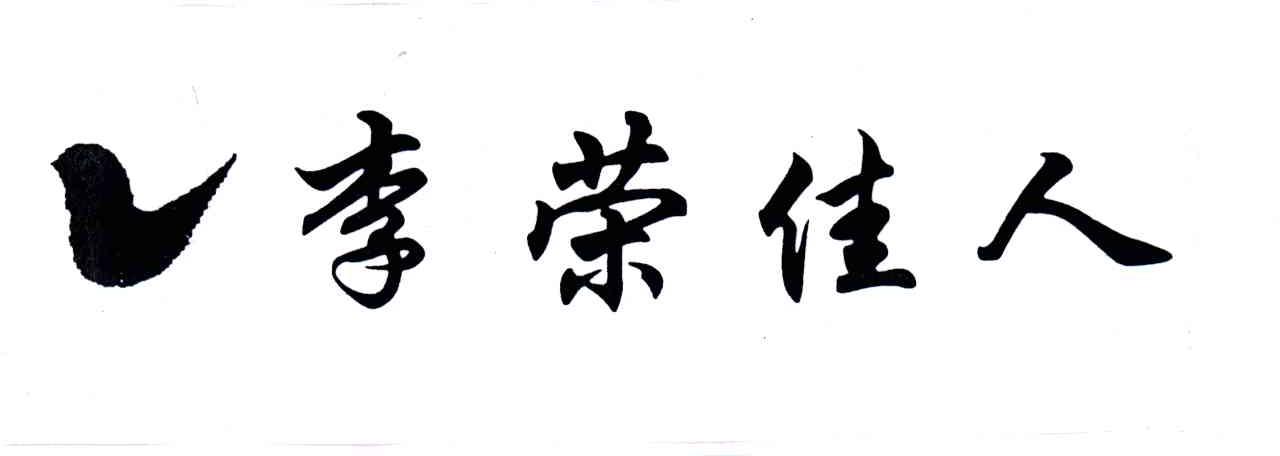 李荣佳人